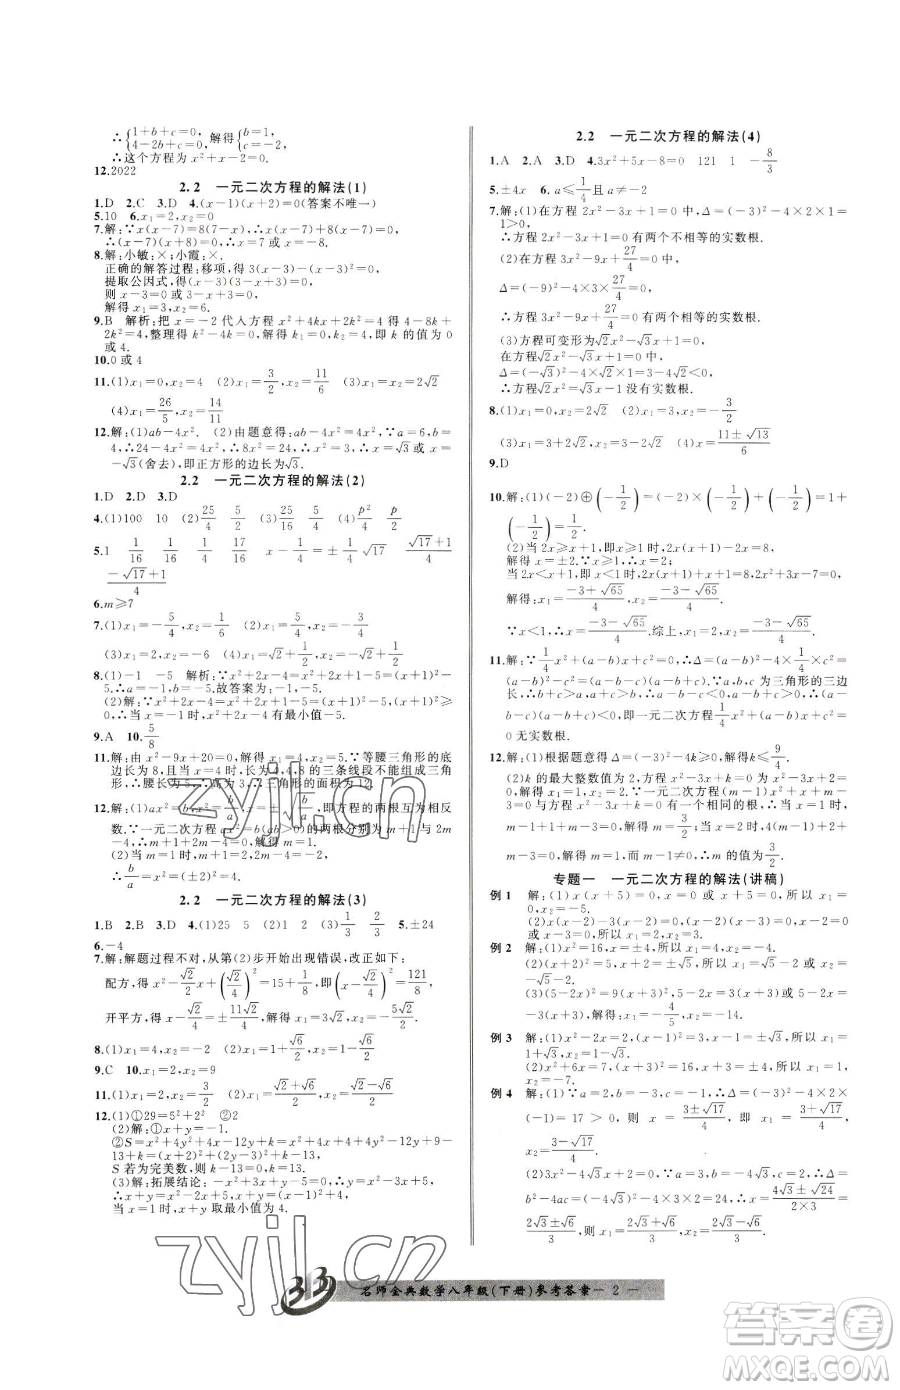 ∴{1+b+c=0, 4-2b+c=0. 解得{b=1, c=-2,
∴这个方程为 x²+x-2=0.
12.2022
2.2 一元二次方程的解法(1)
1.D 2.C 3.D 4.(x-1)(x+2)=0(答案不唯一)
5.10 6.x₁=2,x₂=0
7.解:∵x(x-7)=8(7-x),∴x(x-7)+8(x-7)=0,
∴(x-7)(x+8)=0,∴x=7或x=-8.
8.解:小敏:×;小霞:×.
正确的解答过程:移项,得3(x-3)-(x-3)²=0,
提取公因式,得(x-3)(3-x+3)=0,
则x-3=0或3-x+3=0,
解得x₁=3,x₂=6.
9.B 解析:把x=-2代入方程x²+4kx+2k²=4得4-8k+
2k²=4,整理得k²-4k=0,解得k₁=0,k₂=4,即k的值为0
或4.
10.0或4
11.(1)x₁=0,x₂=4 (2)x₁=3/2,x₂=11/6 (3)x₁=x₂=2√2
(4)x₁=26/5,x₂=14/11
12.解:(1)ab-4x². (2)由题意得:ab-4x²=4x²,∵a=6,b=
4,∴24-4x²=4x²,∴8x²=24,即x²=3,解得x₁=√3,x₂=
-√3(舍去),即正方形的边长为√3.
2.2 一元二次方程的解法(2)
1.D 2.D 3.D
4.(1)100 10 (2)25/4 5/2 (3)25/16 5/4 (4)p²/4 p/2
5.1 1/16 1/16 1/4 17/16 x-1/4=±1/4√17 √17+1/4
-√17+1/4
6.m≥7
7.(1)x₁=-5/4,x₂=1/6 (2)x₁=-5/4,x₂=1/4
(3)x₁=2,x₂=-6 (4)x₁=√2+1/2,x₂=√2-1/2
8.(1)-1 -5 解析:∵x²+2x-4=x²+2x+1-5=(x+1)²-
5.∴a=-1,b=-5.故答案为:-1,-5.
(2)解:∵x²+2x-4=x²+2x+1-5=(x+1)²-5,(x+1)²≥
0,∴当x=-1时,x²+2x-4有最小值-5.
9.A 10.5/8
11.解:由x²-9x+20=0,解得x₁=4,x₂=5.∵等腰三角形的底
边长为8,且当x=4时,边长为4,4,8的三条线段不能组成三角
形,∴腰长为5,∴高为3,∴三角形的面积为12.
数.∵一元二次方程ax²=b(ab>0)的两根分别为m+1与2m-
4,∴m+1+2m-4=0,解得m=1.
(2)当m=1时,m+1=2,2m-4=-2.
∴b/a=x²=(±2)²=4.
2.2 一元二次方程的解法(3)
1.B 2.B 3.D 4.(1)25 5 (2)1 2 (3)1/3 2/3 5.±24
6.-4
7.解:解题过程不对,从第(2)步开始出现错误,改正如下:
配方,得x²-√2/2x+(√2/4)²=15+1/8,即(x-√2/4)²=121/8
开平方,得x-√2/4=±11√2/4,解得x₁=3√2,x₂=-5√2/2.
8.(1)x₁=4,x₂=-2 (2)x₁=-1+√6/2,x₂=-1-√6/2
9.C 10.x₁=2,x₂=9
11.(1)x₁=2,x₂=3/2 (2)x₁=√2+√6/2,x₂=√2-√6/2
12.(1)①29=5²+2² ②2
(2)解:①x+y=-1.
②S=x²+4y²+4x-12y+k=(x²+4x+4)+(4y²-12y+
9)-13+k=(x+2)²+(2y-3)²-13+k,
S若为完美数,则-13+k=0,∴k=13.
(3)解:拓展结论:∵-x²+3x+y-5=0,∴y=x²-3x+5,
∴x+y=x+x²-3x+5=x²-2x+5=(x-1)²+4,
当x=1时,x+y取最小值为4.
2.2 一元二次方程的解法(4)
1.A 2.A 3.D 4.3x²+5x-8=0 121 1 -8/3
5.±4x 6.a≤1/4且a≠-2
7.解:(1)在方程2x²-3x+1=0中,Δ=(-3)²-4×2×1=
1>0,
∴方程2x²-3x+1=0有两个不相等的实数根.
(2)在方程3x²-9x+27/4=0中,
Δ=(-9)²-4×3×27/4=0,
∴方程3x²-9x+27/4=0有两个相等的实数根.
(3)方程可变形为√2x²-√3x+1=0,
在方程√2x²-√3x+1=0中,
Δ=(-√3)²-4×√2×1=3-4√2<0,
∴方程√2x²-√3x+1=0没有实数根.
8.(1)x₁=0,x₂=2√2 (2)x₁=2,x₂=-3/2
(3)x₁=-2+√5,x₂=-2-√5 (4)x=11±√13/6
9.D
10.解:(1)(-2)⊕(-1/2)=(-2)×(-1/2)+(-1/2)=1+
(-1/2)=1/2.
(2)当2x≥x+1,即x≥1时,2x(x+1)-2x=8,
解得x=±2.∵x≥1,∴x=2;
当2x<x+1,即x<1时,2x(x+1)+x=8,
解得:x₁=-3+√65/4,x₂=-3-√65/4.
∵x<1,∴x=-3-√65/4.综上,x₁=2,x₂=-3-√65/4.
0无实数根.
12.解:(1)根据题意得Δ=(-3)²-4k≥0,解得k≤9/4.
(2)k的最大整数值为2,方程x²-3x+k=0变形为x²-3x+2=
0,解得x₁=1,x₂=2.∵一元二次方程(m-1)x²+x+m-3=
0与方程x²-3x+k=0有一个相同的根,∴当x=1时,m-
1+1+m-3=0,解得m=3/2;当x=2时,4(m-1)+2+
m-3=0,解得m=1,而m-1≠0,∴m的值为3/2.
专题一 一元二次方程的解法(讲稿)
例1 解:(1)x(x+5)=0,x=0或x+5=0,所以x₁=
0,x₂=-5.
(2)(x-2)(x-2-x)=0,x-2=0或x-2-x=0
所以x₁=x₂=2.
例2 解:(1)x²=16,x=±4,所以x₁=4,x₂=-4.
(2)(x+2)²=5,x+2=±√5,所以x₁=√5-2,x₂=
-√5-2.
(3)(5-2x)²=9(x+3)²,5-2x=3(x+3)或5-2x=
-3(x+3),解得:x₁=-4/5,x₂=-14.
例3 解:(1)x²-2x=2,(x-1)²=3,x-1=±√3,所以x₁=
1+√3,x₂=1-√3.
(2)x²+6x=7,(x+3)²=16,x+3=±4,所以x₁=1,
x₂=-7.
例4 解:(1)∵a=2,b=-3,c=-1,∴Δ=(-3)²-4×2×
(-1)=17>0,则x=3±√17/4,所以x₁=3+√17/4,
x₂=3-√17/4
(2)3x²-4√3x+2=0.∵a=3,b=-4√3,c=2,∴Δ=
b²-4ac=(-4√3)²-4×3×2=24>0,∴x=4√3±√24/2×3=
2√3±√6/3,则x₁=2√3+√6/3,x₂=2√3-√6/3.
33 名师金典数学八年级(下册)参考答案—2—
zyjl.cn
zyjl.cn
答案圈
MXQE.COM